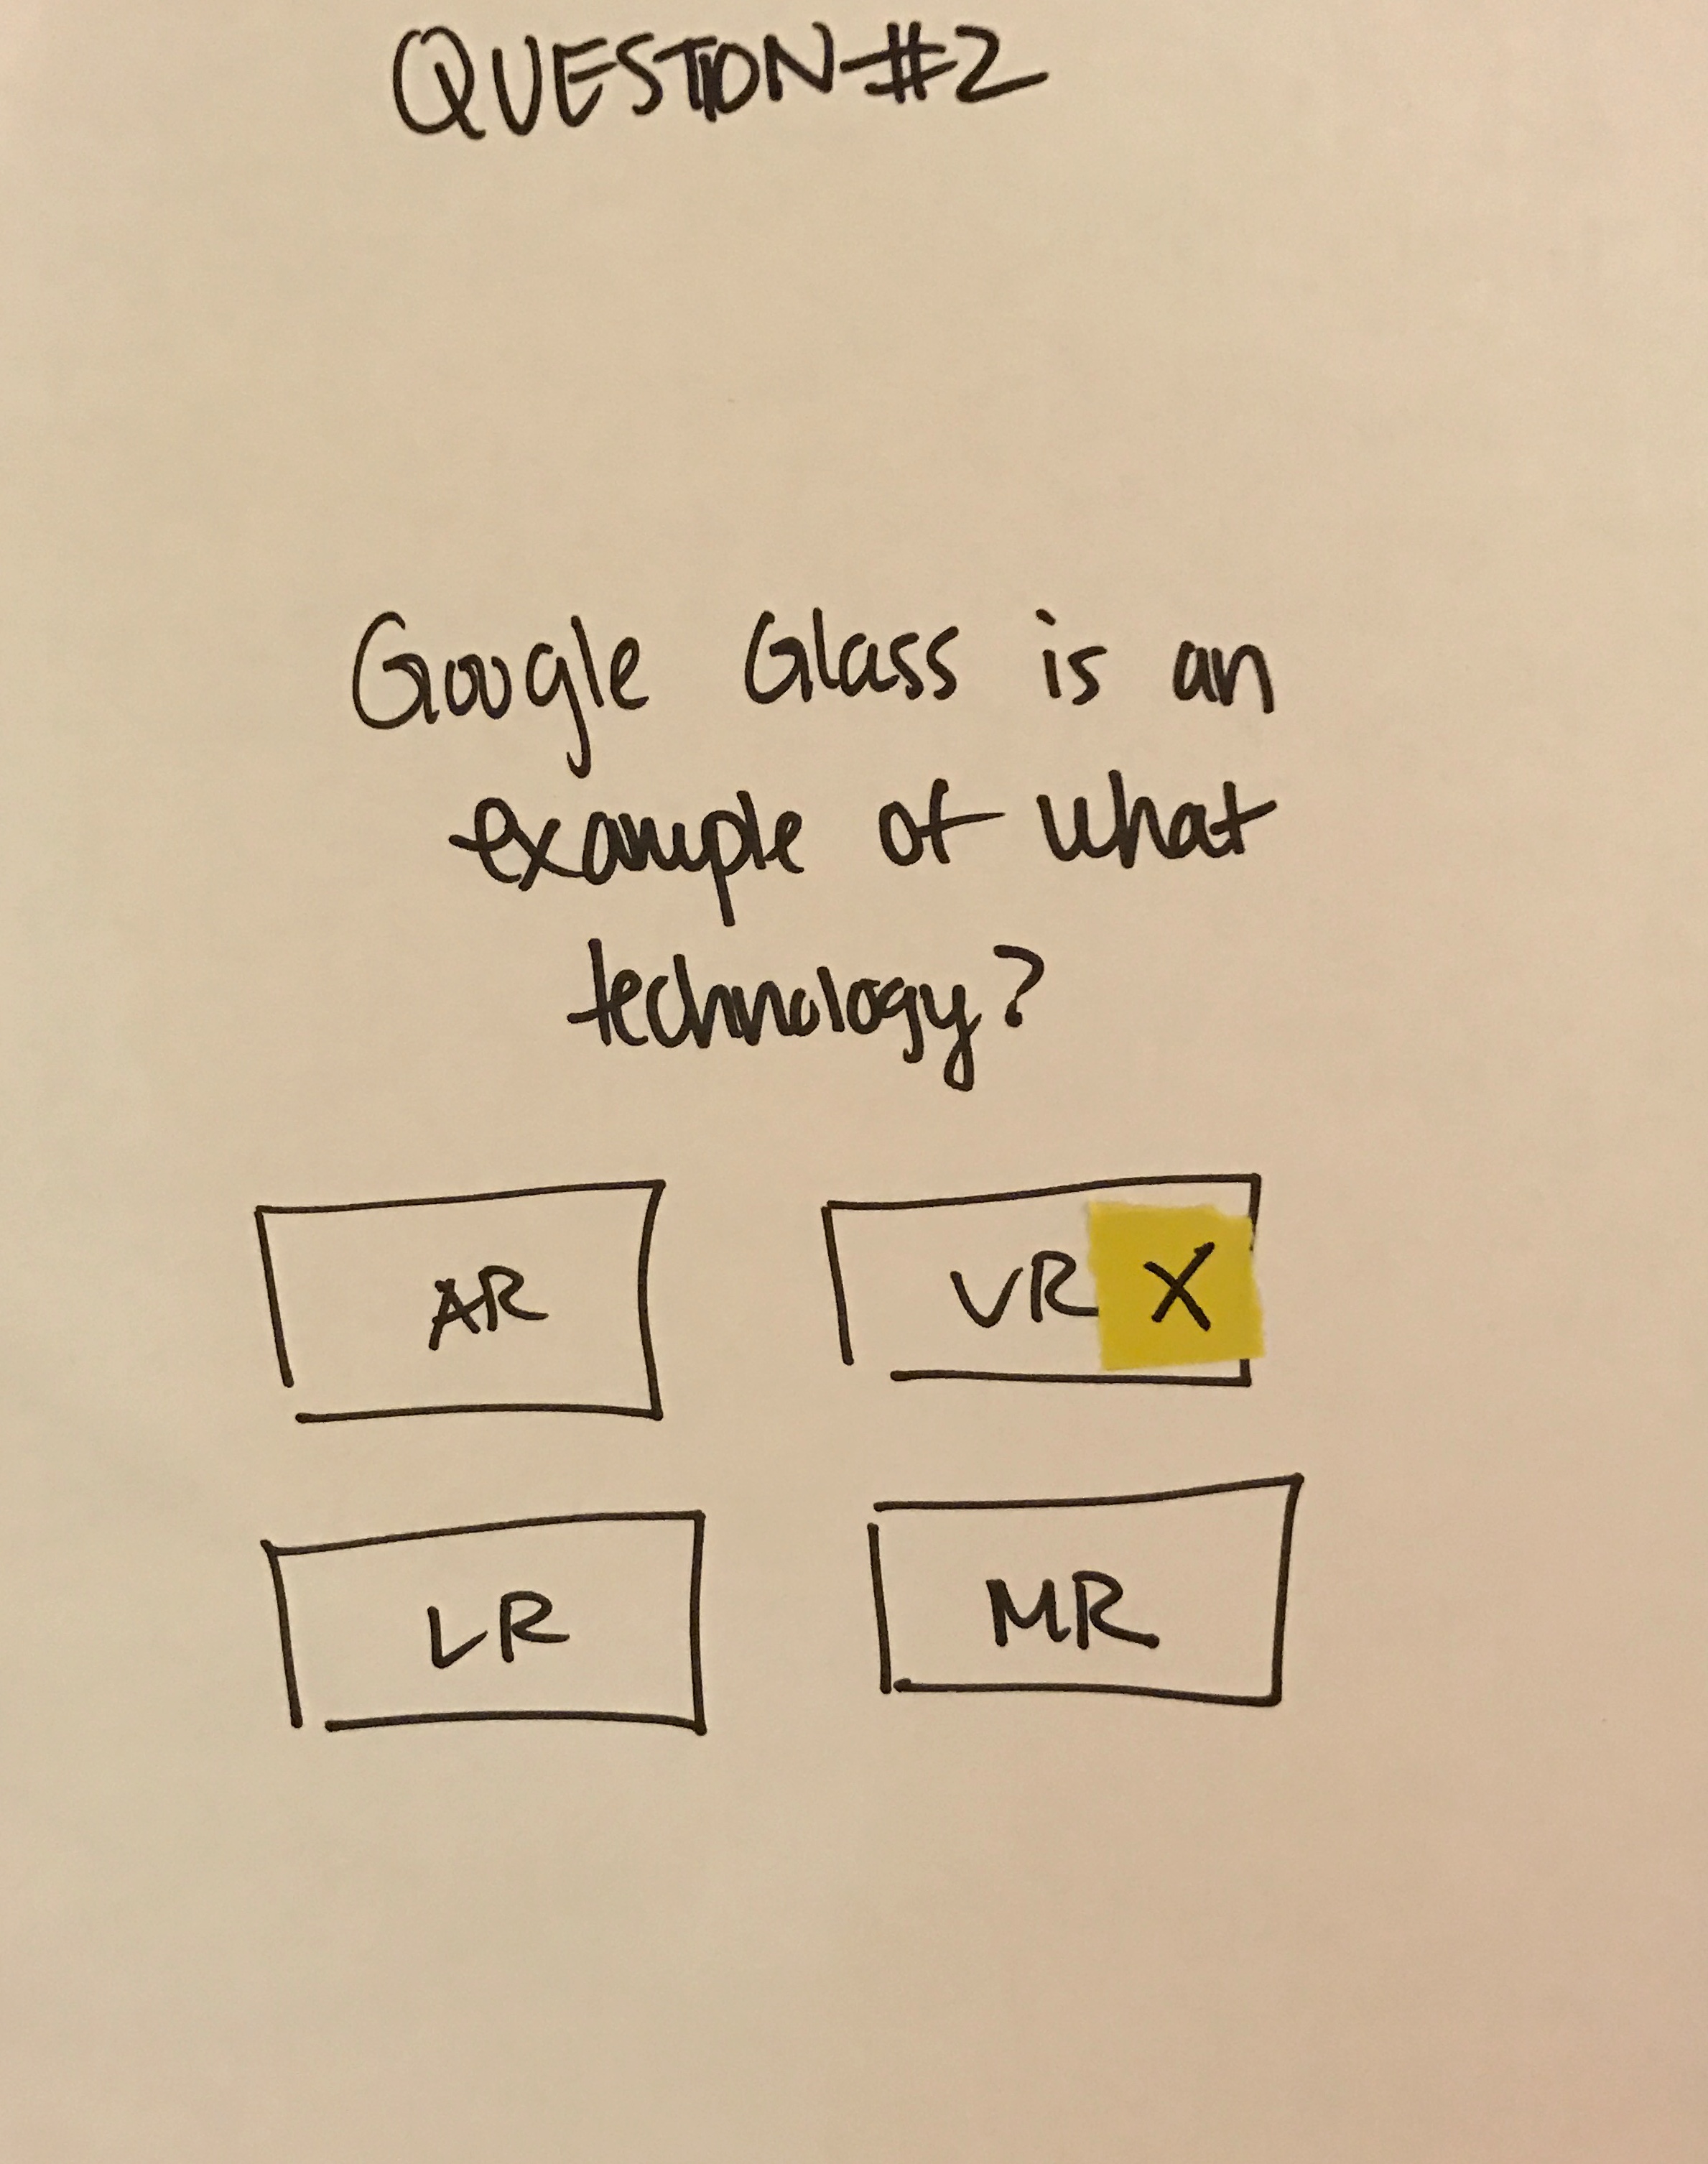 QUESTION #2
Google Glass is an
example of what
technology?
AR
VR X
LR
MR